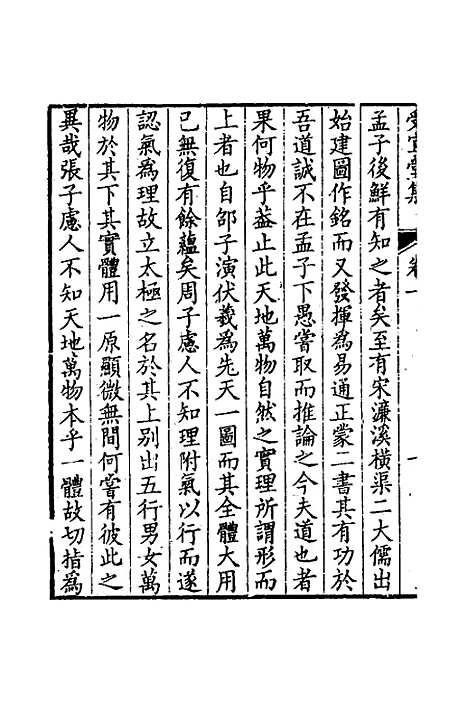 孟子後鮮有知之者矣至有宋濂溪橫渠二大儒出
始建圖作銘而又發揮爲易通正蒙二書其有功於
吾道誠不在孟子下愚嘗取而推論之今夫道也者
果何物乎葢止此天地萬物自然之實理所謂形而
上者也自邵子演伏羲爲先天一圖而其全體大用
已無復有餘蘊矣周子慮人不知理附氣以行而遂
認氣爲理故立太極之名於其上别出五行男女萬
物於其下其實體用一原顯微無間何嘗有彼此之
異哉張子慮人不知天地萬物本乎一體故切指爲